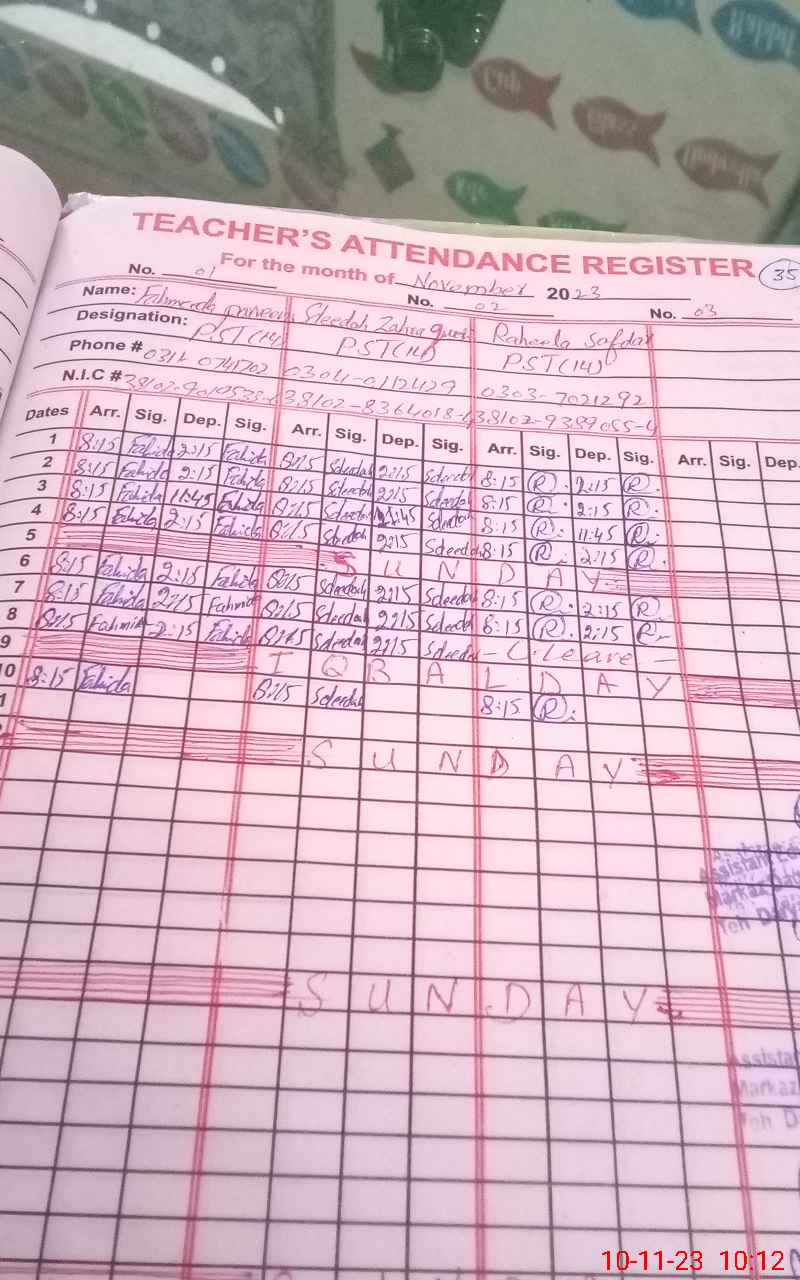 TEACHER'S ATTENDANCE REGISTER 35
For the month of November 2023
No. 01 No. 02 No. 03
Name: Sdeedah Zahra Raheela Safdar
Designation: PST(14) PST(14) PST(14)
Phone # 0304-0112429 0303-7021292
N.I.C # 38102-8364018- 38102-9389055-4
Dates Arr. Sig. Dep. Sig. Arr. Sig. Dep. Sig. Arr. Sig. Dep. Sig. Arr. Sig. Dep.
1 8:15 Fahida 2:15 Fahida 8:15 Sdeedah 2:15 Sdeedah 8:15 R 2:15 R
2 8:15 Fahida 2:15 Fahida 8:15 Sdeedah 2:15 Sdeedah 8:15 R 2:15 R
3 8:15 Fahida 11:45 Fahida 8:15 Sdeedah 11:45 Sdeedah 8:15 R 11:45 R
4 8:15 Fahida 2:15 Fahida 8:15 Sdeedah 2:15 Sdeedah 8:15 R 2:15 R
5 SUNDAY
6 8:15 Fahida 2:15 Fahida 8:15 Sdeedah 2:15 Sdeedah 8:15 R 2:15 R
7 8:15 Fahida 2:15 Fahmida 8:15 Sdeedah 2:15 Sdeedah 8:15 R 2:15 R
8 8:15 Fahmida 2:15 Fahida 8:15 Sdeedah 2:15 Sdeedah - C. Leave -
9 IQBAL DAY
10 8:15 Fahida 8:15 Sdeedah 8:15 R
1
SUNDAY
Assistant
Markaz
Teh
SUNDAY
Assista
Markaz
Teh D
10-11-23 10:12